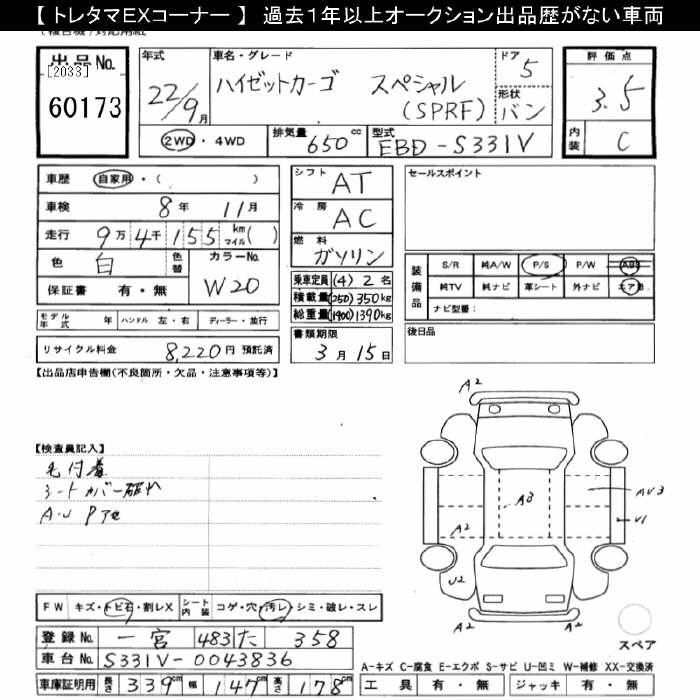 【 トレタマEXコーナー 】 過去1年以上オークション出品歴がない車両
出品No.
[2033]
60173
年式
22/9月
車名・グレード
ハイゼットカーゴ スペシャル
(SPRF)
ドア
5
形状
バン
評価点
3.5
内装
C
2WD・4WD
排気量
650cc
型式
EBD-S331V
車歴 自家用・( )
車検 8年 11月
走行 9万4千155 km マイル( )
色 白 色替
カラーNo.
W20
保証書 有・無
モデル年式 年 ハンドル 左・右 ディーラー・並行
リサイクル料金 8,220円 預託済
シフト
AT
冷房
AC
燃料
ガソリン
乗車定員(4)2名
積載量(250)350kg
総重量(1400)1390kg
書類期限
3月15日
セールスポイント
装備品
S/R 純A/W P/S P/W ABS
純TV 純ナビ 革シート 外ナビ エアB
ナビ型番:
後日品
【出品店申告欄(不良箇所・欠品・注意事項等)】
【検査員記入】
毛付着
シートカバー破れ
A・U
A2
A3
AU3
U1
A2
U2
A2
A2
スペア
FW キズ・トビ石・割レX シート内装 コゲ・穴・汚レ・シミ・破レ・スレ
登録No. 一宮 483 た 358
車台No. S331V-0043836
車庫証明用 長さ 339cm 幅 147cm 高さ 178cm
A-キズ C-腐食 E-エクボ S-サビ U-凹ミ W-補修 XX-交換済
工具 有・無 ジャッキ 有・無